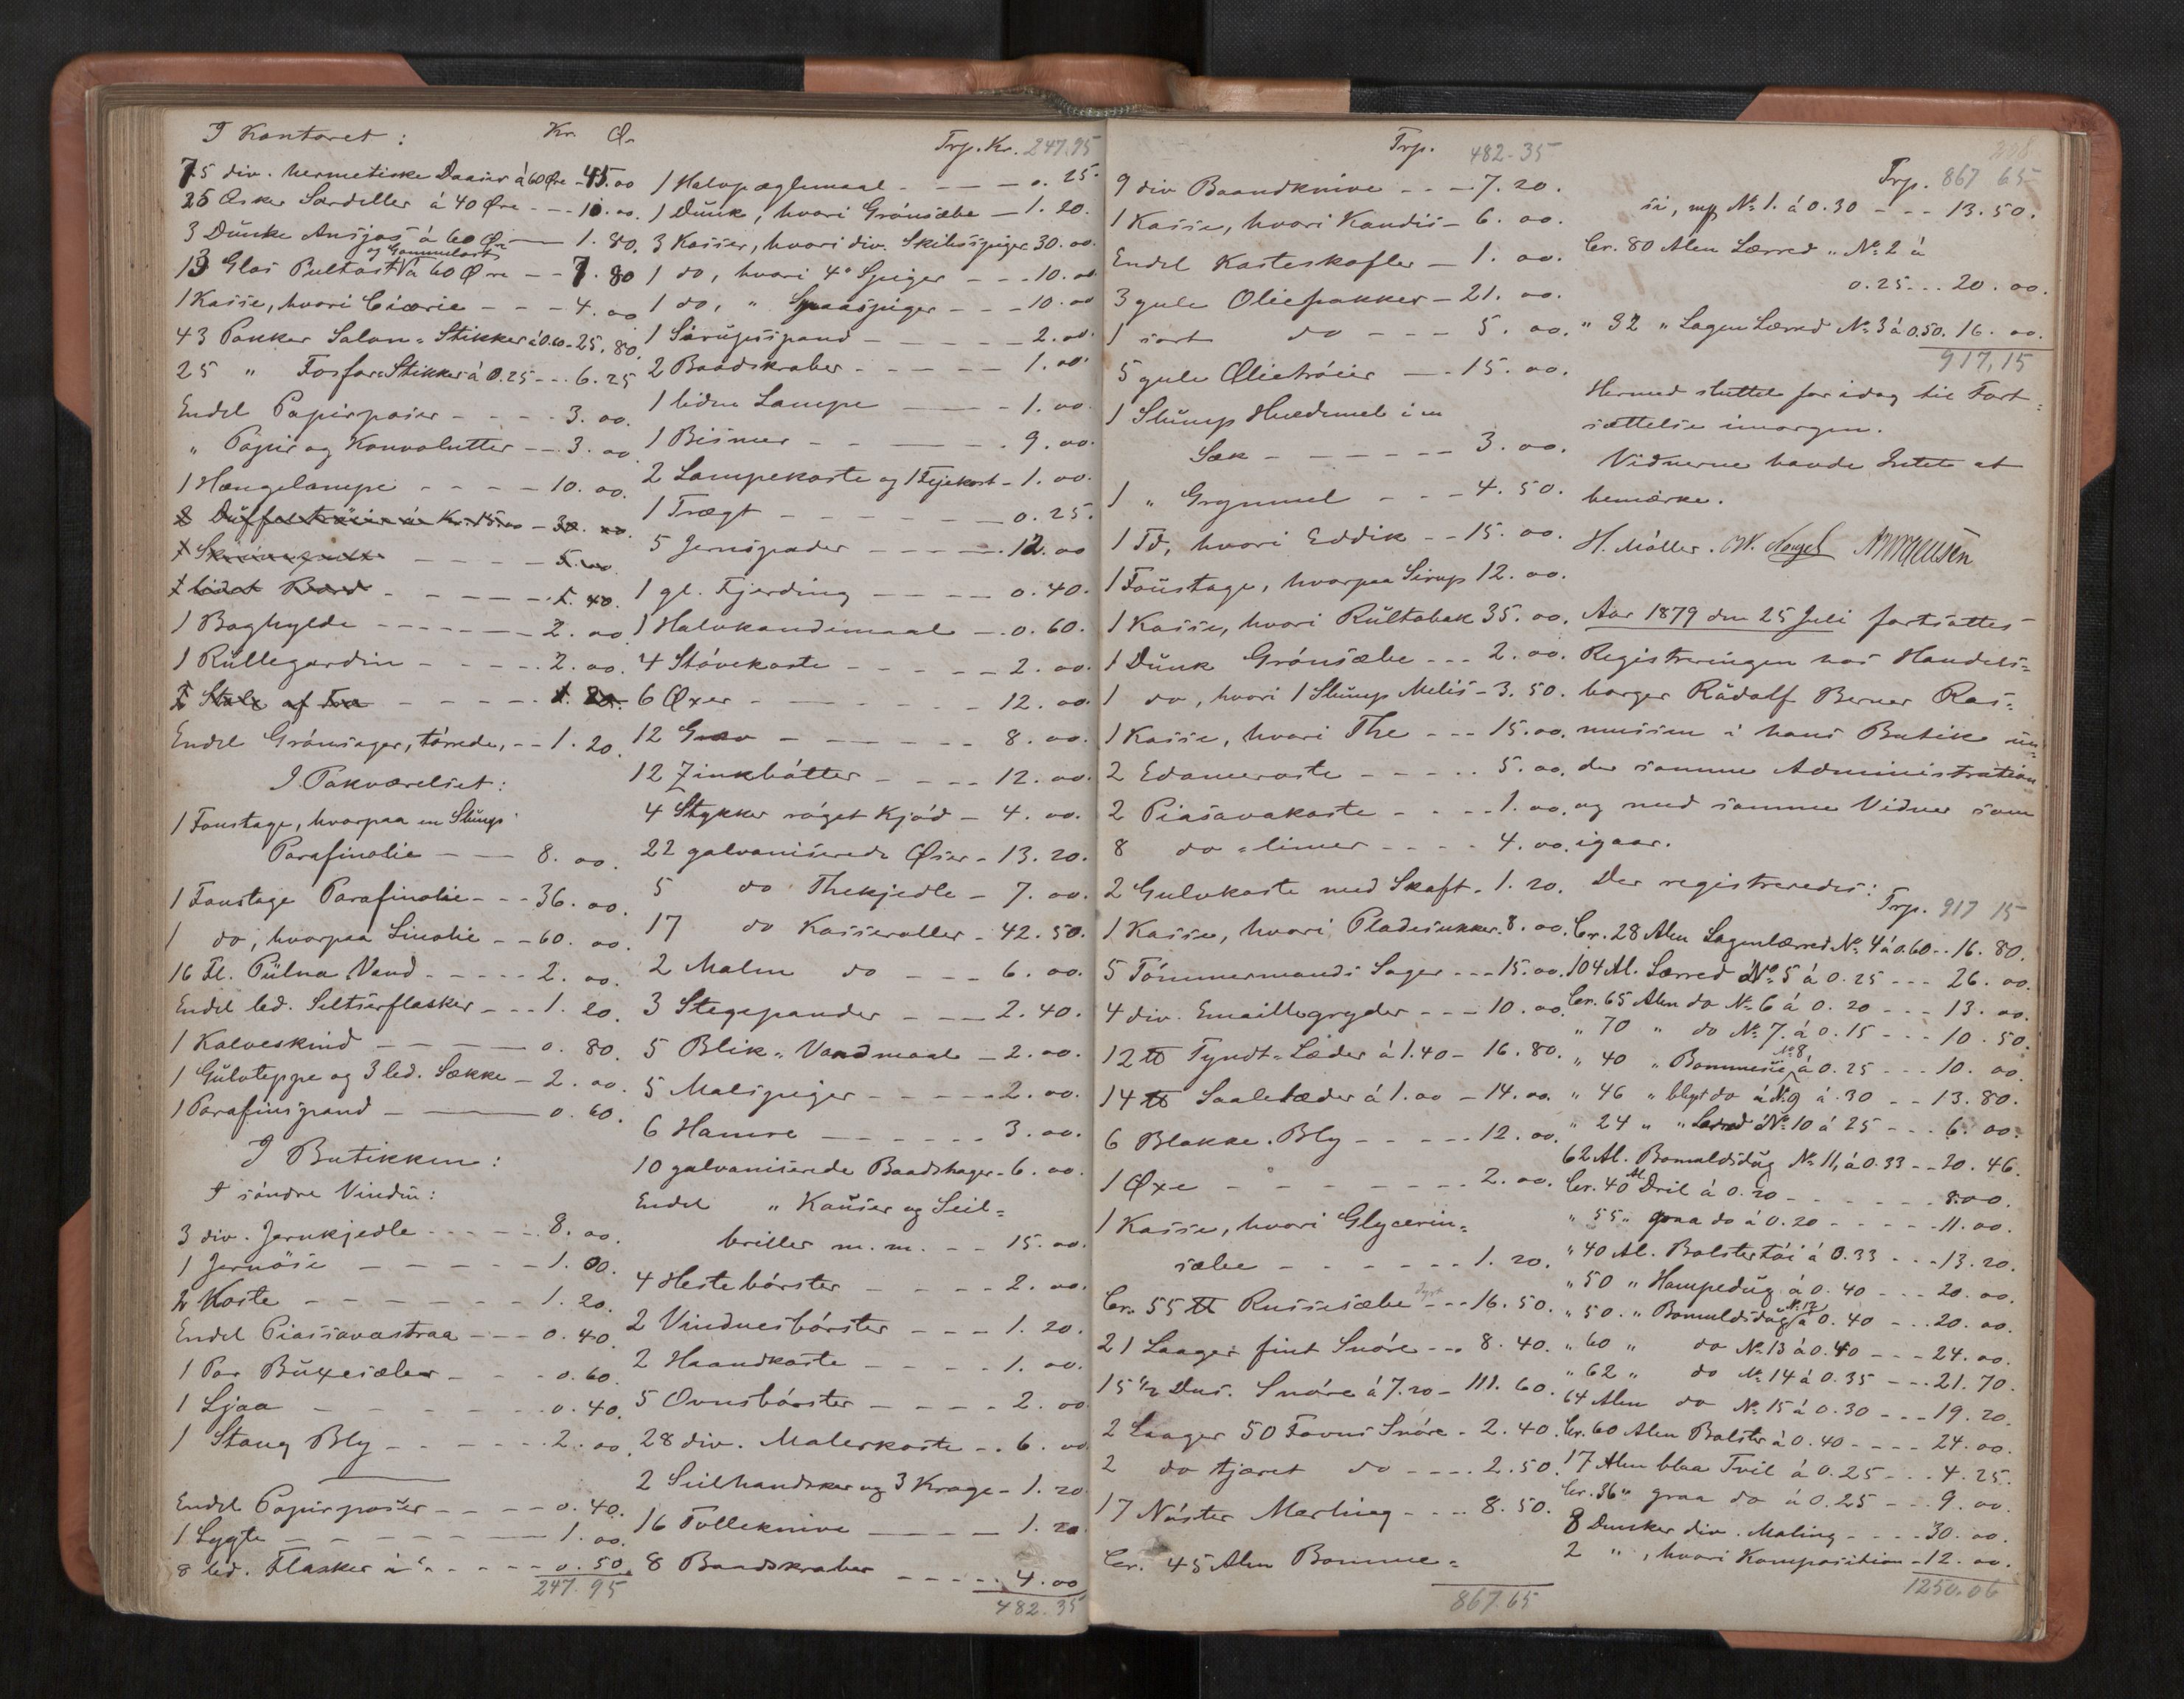 I Kontoret : Kr. Ø.
75 div. hermetiske Daaser á 60 Øre - 45.00
25 Æsker Sardeller á 40 Øre - - 10.00.
3 Dunke Ansjos á 60 Ør - 1.80.
og Gammelost
13 Glas Pultost á 60 Øre - - 7.80
1 Kasse, hvori Cicorie - - - 4.00
43 Pakker Salon-Stikker á 0.60 - 25.80.
25 " Fosfor-Stikker á 0.25 - - 6.25
Endel Papirposer - - - - 3.00.
" Papir og Konvolutter - - 3.00
1 Hængelampe - - - - 10.00.
2 Duffelstrøier á Kr. 15.00 - 30.00.
1 - - - - 5.00.
1 lidet Bord - - - - - 1.40.
1 Boghylde - - - - - - 2.00
1 Rullegardin - - - - - 2.00.
2 Stole af Træ - - - - - 1.20.
Endel Grønsager, tørrede, - - 1.20.
I Pakværelset:
1 Foustage, hvorpaa en Slump
Parafinolie - - - 8.00.
1 Foustage Parafinolie - - - 36.00.
1 do, hvorpaa Linolie - - 60.00.
16 Fl. Pülna Vand - - - - - 2.00.
Endel led. Seltserflasker - - - 1.20.
1 Kalveskind - - - - - 0.80.
1 Gulvteppe og 3 led. Sække - 2.00.
1 Parafinspand - - - 0.60.
I Butikken:
I søndre Vindu:
3 div. Jernkjedle - - - - - 8.00.
1 Jernøse - - - - - 1.00.
2 Koste - - - - - - 1.20.
Endel Piassavastraa - - - 0.40.
1 Par Buxeseler - - - 0.60.
1 Ljaa - - - - - - 0.40.
1 Stang Bly - - - - - - 2.00.
Endel Papirposer - - - - 0.40.
1 Lygte - - - - - - 1.00.
8 led. Flasker - - - - 0.50.
247.95
Trp. Kr. 247.95
1 Halvpæglemaal - - - - 0.25.
1 Dunk, hvori Grønsæbe - 1.20.
3 Kasser, hvori div. Skibsspiger 30.00.
1 do, hvori 4" Spiger - - - 10.00
1 do, " Smaaspiger - - - 10.00
1 Sirupsspand - - - - - 2.00.
2 Baadskraber - - - - - 1.00.
1 liden Lampe - - - 1.00.
1 Bismer - - - - - 9.00.
2 Lampekoste og 1 Fejekost - 1.00.
1 Tragt - - - - - - - 0.25.
5 Jernspader - - - - 12.00
1 gl. Fjerding - - - - 0.40.
1 Halvkandemaal - 0.60.
4 Støvekoste - - - - - 2.00.
6 Øxer - - - - - - 12.00.
12 Grev - - - - - - 8.00.
12 Zinkbøtter - - - - 12.00.
4 Stykker røget Kjød - 4.00.
22 galvaniserede Øser - 13.20.
5 do Thekjedle - 7.00.
17 do Kasseroller - 42.50.
2 Malm do - - - 6.00.
3 Stegepander - - - 2.40.
5 Blik-Vandmaal - 2.00.
5 Malspiger - - - - - 2.00.
6 Hamre - - - - - - 3.00.
10 galvaniserede Baadshager - 6.00.
Endel " Kauser og Seil-
briller m.m. - - 15.00.
4 Hestebørster - - - - 2.00.
2 Vinduesbørster - - - 1.20.
2 Haandkoste - - - - 1.00.
5 Ovnsbørster - - - - 2.00
28 div. Malerkoste - - 6.00
2 Seilhandsker og 3 Krage - 1.20
16 Tolleknive - - - - 1.20
8 Baadskraber - - - - - 4.00
482.35
Trp. 482-35
9 div Baandknive - - - 7.20.
1 Kasse, hvori Kandis - 6.00.
Endel Kasteskofler - 1.00.
3 gule Oliefrakker - 21.00.
1 sort do - - - 5.00.
5 gule Olietrøier - - 15.00.
1 Slump Hvedemel i en
Sæk - - - - - - 3.00.
1 " Grynmel - - - 4.50.
1 Td, hvori Eddik - - 15.00.
1 Foustage, hvorpaa Sirup 12.00.
1 Kasse, hvori Rultobak 35.00.
1 Dunk Grønsæbe - - - 2.00.
1 do, hvori 1 Slump Melis - 3.50.
1 Kasse, hvori The - - - 15.00.
2 Edameroste - - - - - 5.00.
2 Piasavakoste - - - - 1.00.
8 do-limer - - - - 4.00.
2 Gulvkoste med Skaft - 1.20.
1 Kasse, hvori Pladesukker. 8.00.
5 Tømmermands Sager - - - 15.00.
4 div. Emaillegryder - - - 10.00.
12 ℔ Tyndt-Læder á 1.40 - 16.80.
14 ℔ Saalelæder á 1.00 - 14.00.
6 Blokke Bly - - - - - 12.00.
1 Øxe - - - - - - - 2.00.
1 Kasse, hvori Glycerin-
sæbe - - - - - - 1.20.
Cr. 55 ℔ Russesæbe - - - 16.50.
21 Laager fint Snøre - - 8.40.
15 1/2 Dus. Snøre á 7.20 - 111.60.
2 Laager 50 Favns Snøre - 2.40.
2 do tjæret do - - - - 2.50.
17 Nøster Merling - - - - 8.50.
Cr. 45 Alen Bomme-
867.65
208
Trp. 867 65
si, No 1. á 0.30 - - - 13.50.
Cr. 80 Alen Lærred " No 2 á
0.25 - - - 20.00.
" 32 " Lagen Lærred No 3 á 0.50. 16.00.
917,15
Hermed sluttet for idag til Fort-
sættelse imorgen.
Vidnerne havde Intet at
bemærke.
H. Møller.
Aar 1879 den 25 Juli fortsattes
Registreringen hos Handels-
borger Rudolf Berner Ras-
mussen i hans Butik un-
der samme Administration
og med samme Vidner som
igaar.
Der registreredes:
Trp. 917 15
Cr. 28 Alen Lagenlærred No 4 á 0.60 - - 16.80.
104 Al. Lærred No 5 á 0.25 - - - 26.00.
Cr. 65 Alen do No 6 á 0.20 - - - 13.00.
" 70 " do No 7. á 0.15 - - - 10.50.
" 40 " Bommesie No 8 á 0.25 - - - 10.00.
" 46 " blegt do No 9 á .30 - - 13.80.
" 24 " " Lærred No 10 á 25 - - - 6.00.
62 Al. Bomuldsdug No 11, á 0.33 - - 20.46.
Cr. 40 Al Dril á 0.20 - - - - - - 8.00.
" 55 " graa do á 0.20 - - - - - 11.00.
" 40 Al. Bolstertøi á 0.33 - - - 13.20.
" 50 " Hampedug á 0.40 - - - 20.00.
" 50. " Bomuldsdug No 12 á 0.40 - - - 20.00.
" 60 " do No 13 á 0.40 - - - 24.00.
" 62 " do No 14 á 0.35 - - - 21.70.
64 Alen do No 15 á 0.30 - - - 19.20.
Cr. 60 Alen Bolster á 0.40 - - - - 24.00.
17 Alen blaa Tvil á 0.25 - - - 4.25.
Cr. 36 " graa do á 0.25 - - - 9.00.
8 Dunker div. Maling - - - - 30.00.
2 " , hvori Komposition - 12.00.
1250.06